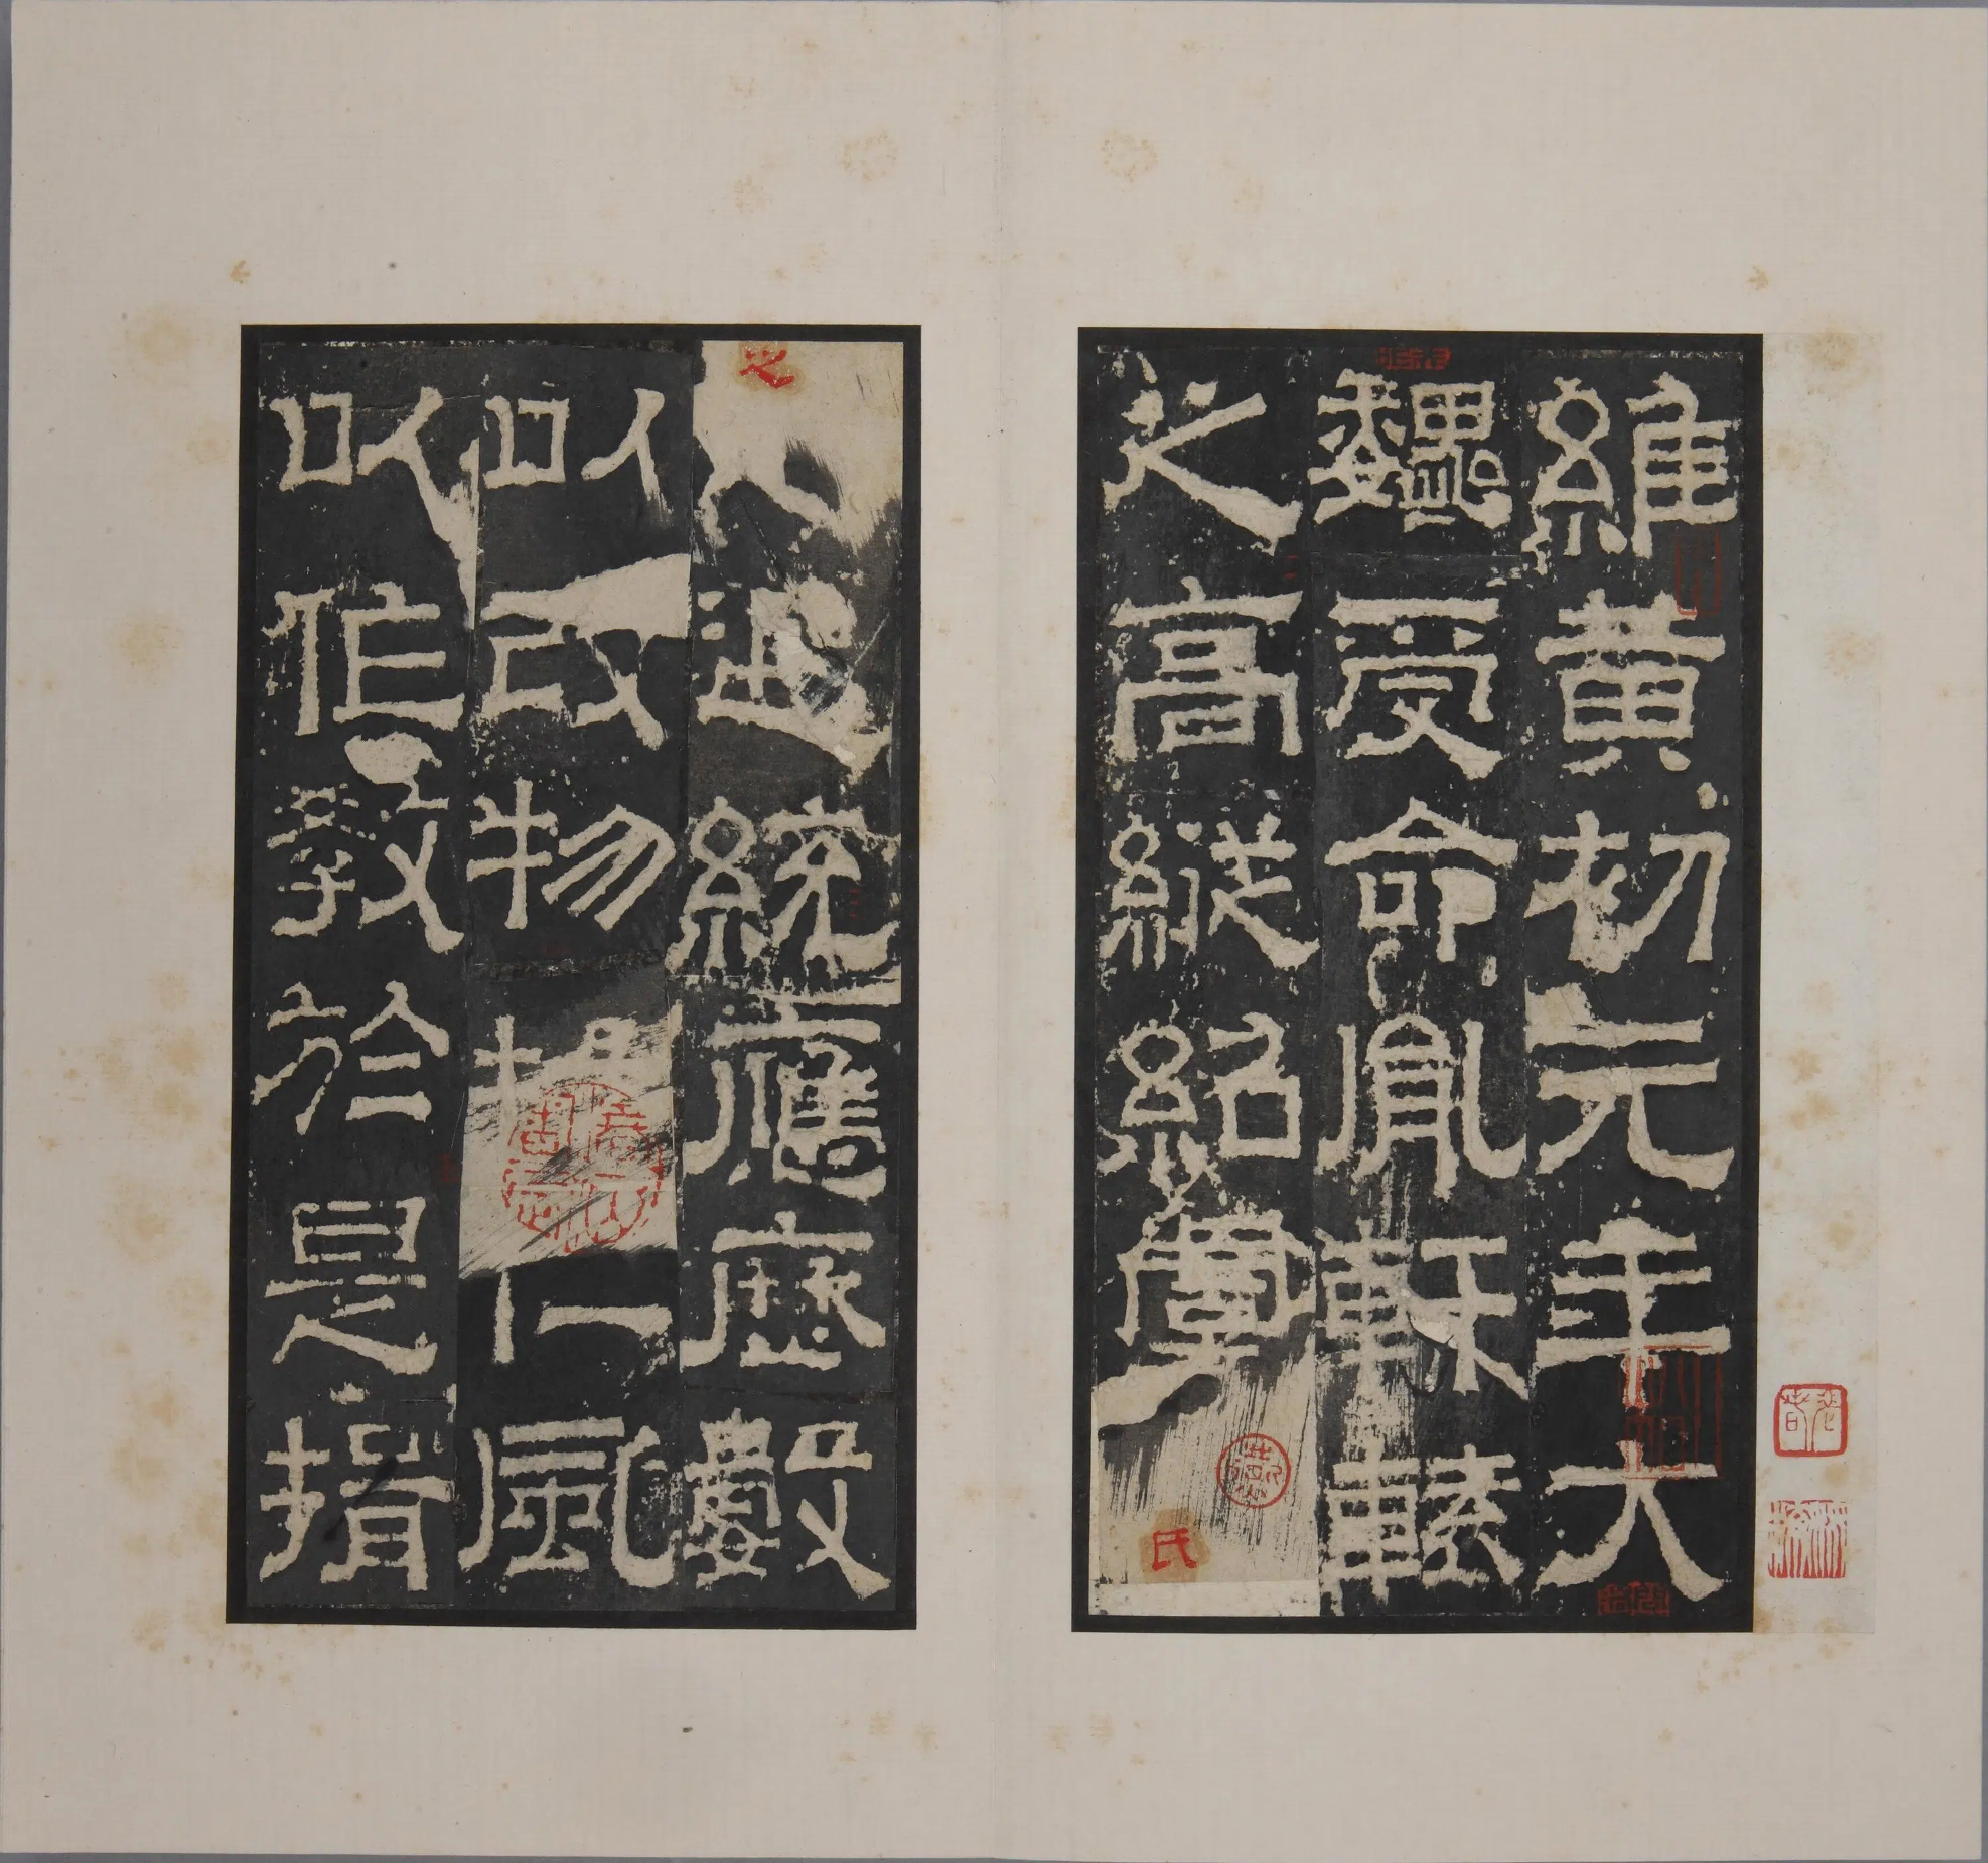 維黃初元年大
魏受命胤軒轅
之高縱紹虞氏
之遐統應歷數
以改物揚仁風
以作教於是揖